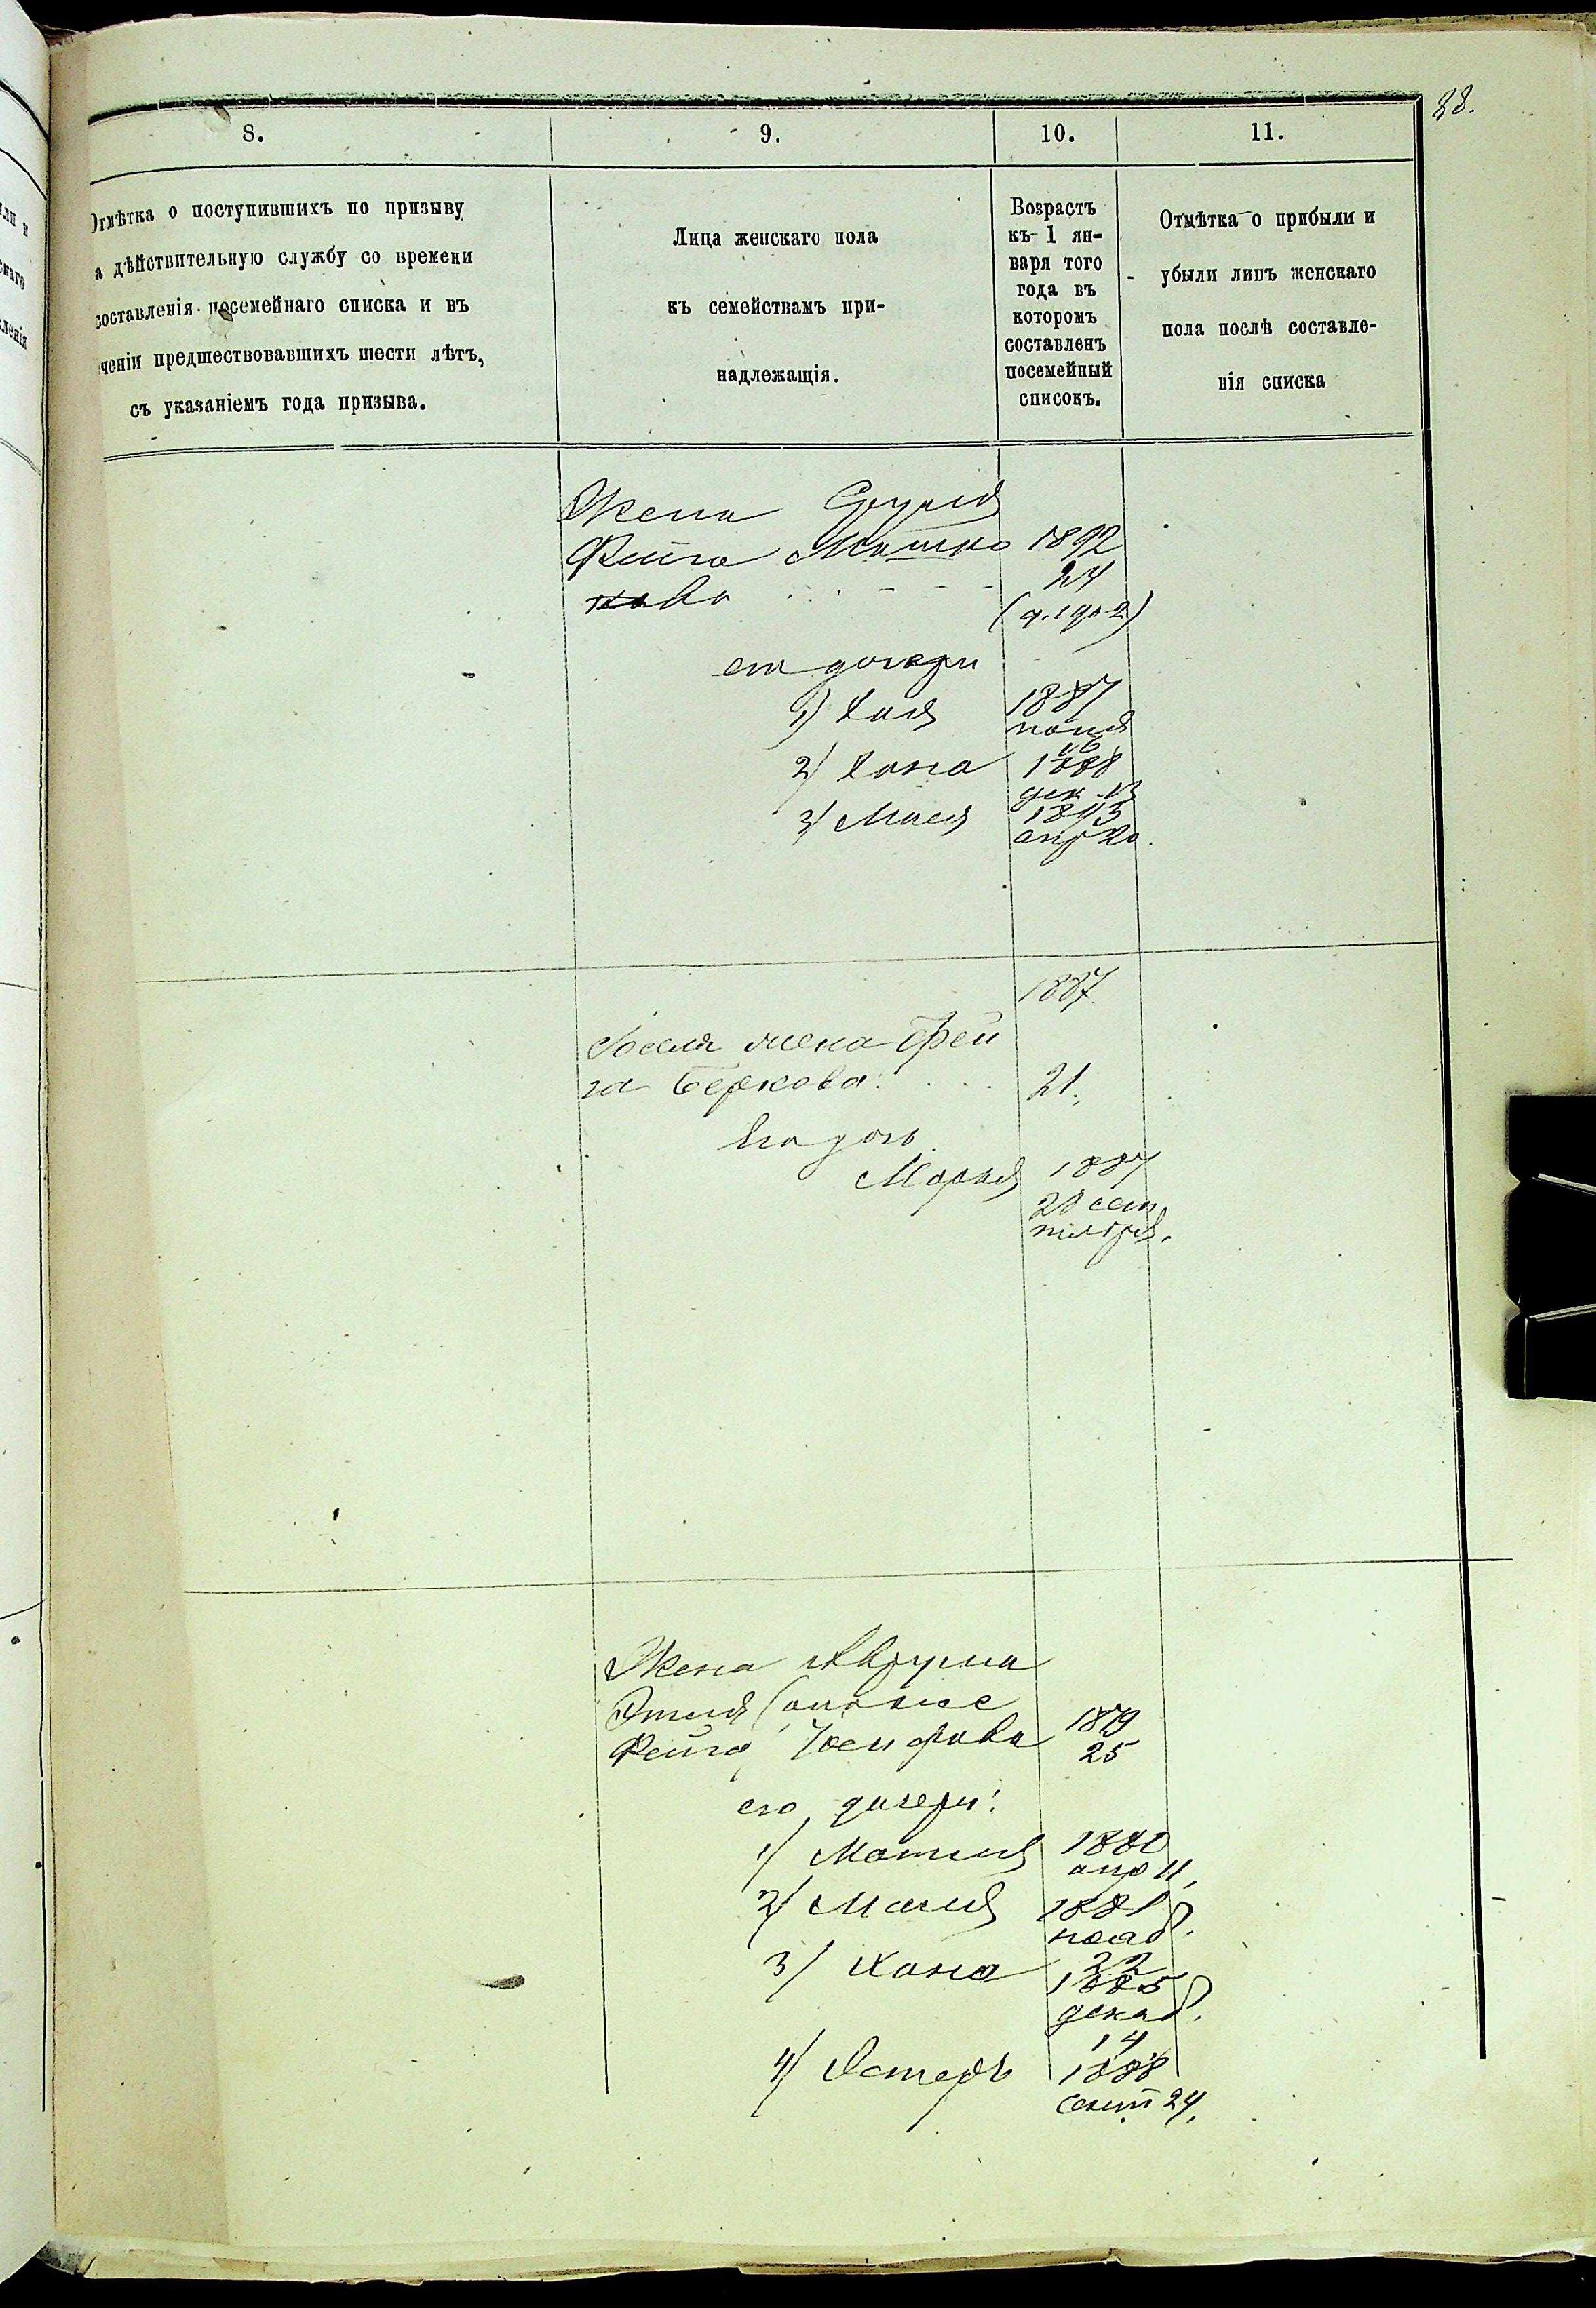 38.
8.
9.
10.
11.
Отмѣтка о поступившихъ по призыву
а дѣйствительную службу со времени
составленія посемейнаго списка и въ
ченіи предшествовавшихъ шести лѣтъ,
съ указаніемъ года призыва.
Лица женскаго пола
къ семействамъ при-
надлежащія.
Возрастъ
къ 1 ян-
варя того
года въ
которомъ
составленъ
посемейный
списокъ.
Отмѣтка о прибыли и
убыли лицъ женскаго
пола послѣ составле-
нія списка
Жена Сруля
Фейга Мошко 1892
ва 24
его дочери
1) Хая 1887
2) Хана 1888
дек 13
3) Мася
апр 20.
1887.
Іоселя жена Фей
га Беркова. 21.
Его дочь
Марья 1887
28 сен
тября.
Жена Аврума
Этля (она же
Фейга) Іосифова 1879
25
его дочери:
1) Мотля 1880
апр 11,
2) Маля 1881
нояб.
22
3) Хана 1885
декаб.
14
4) Эстеръ 1888
сент 24.